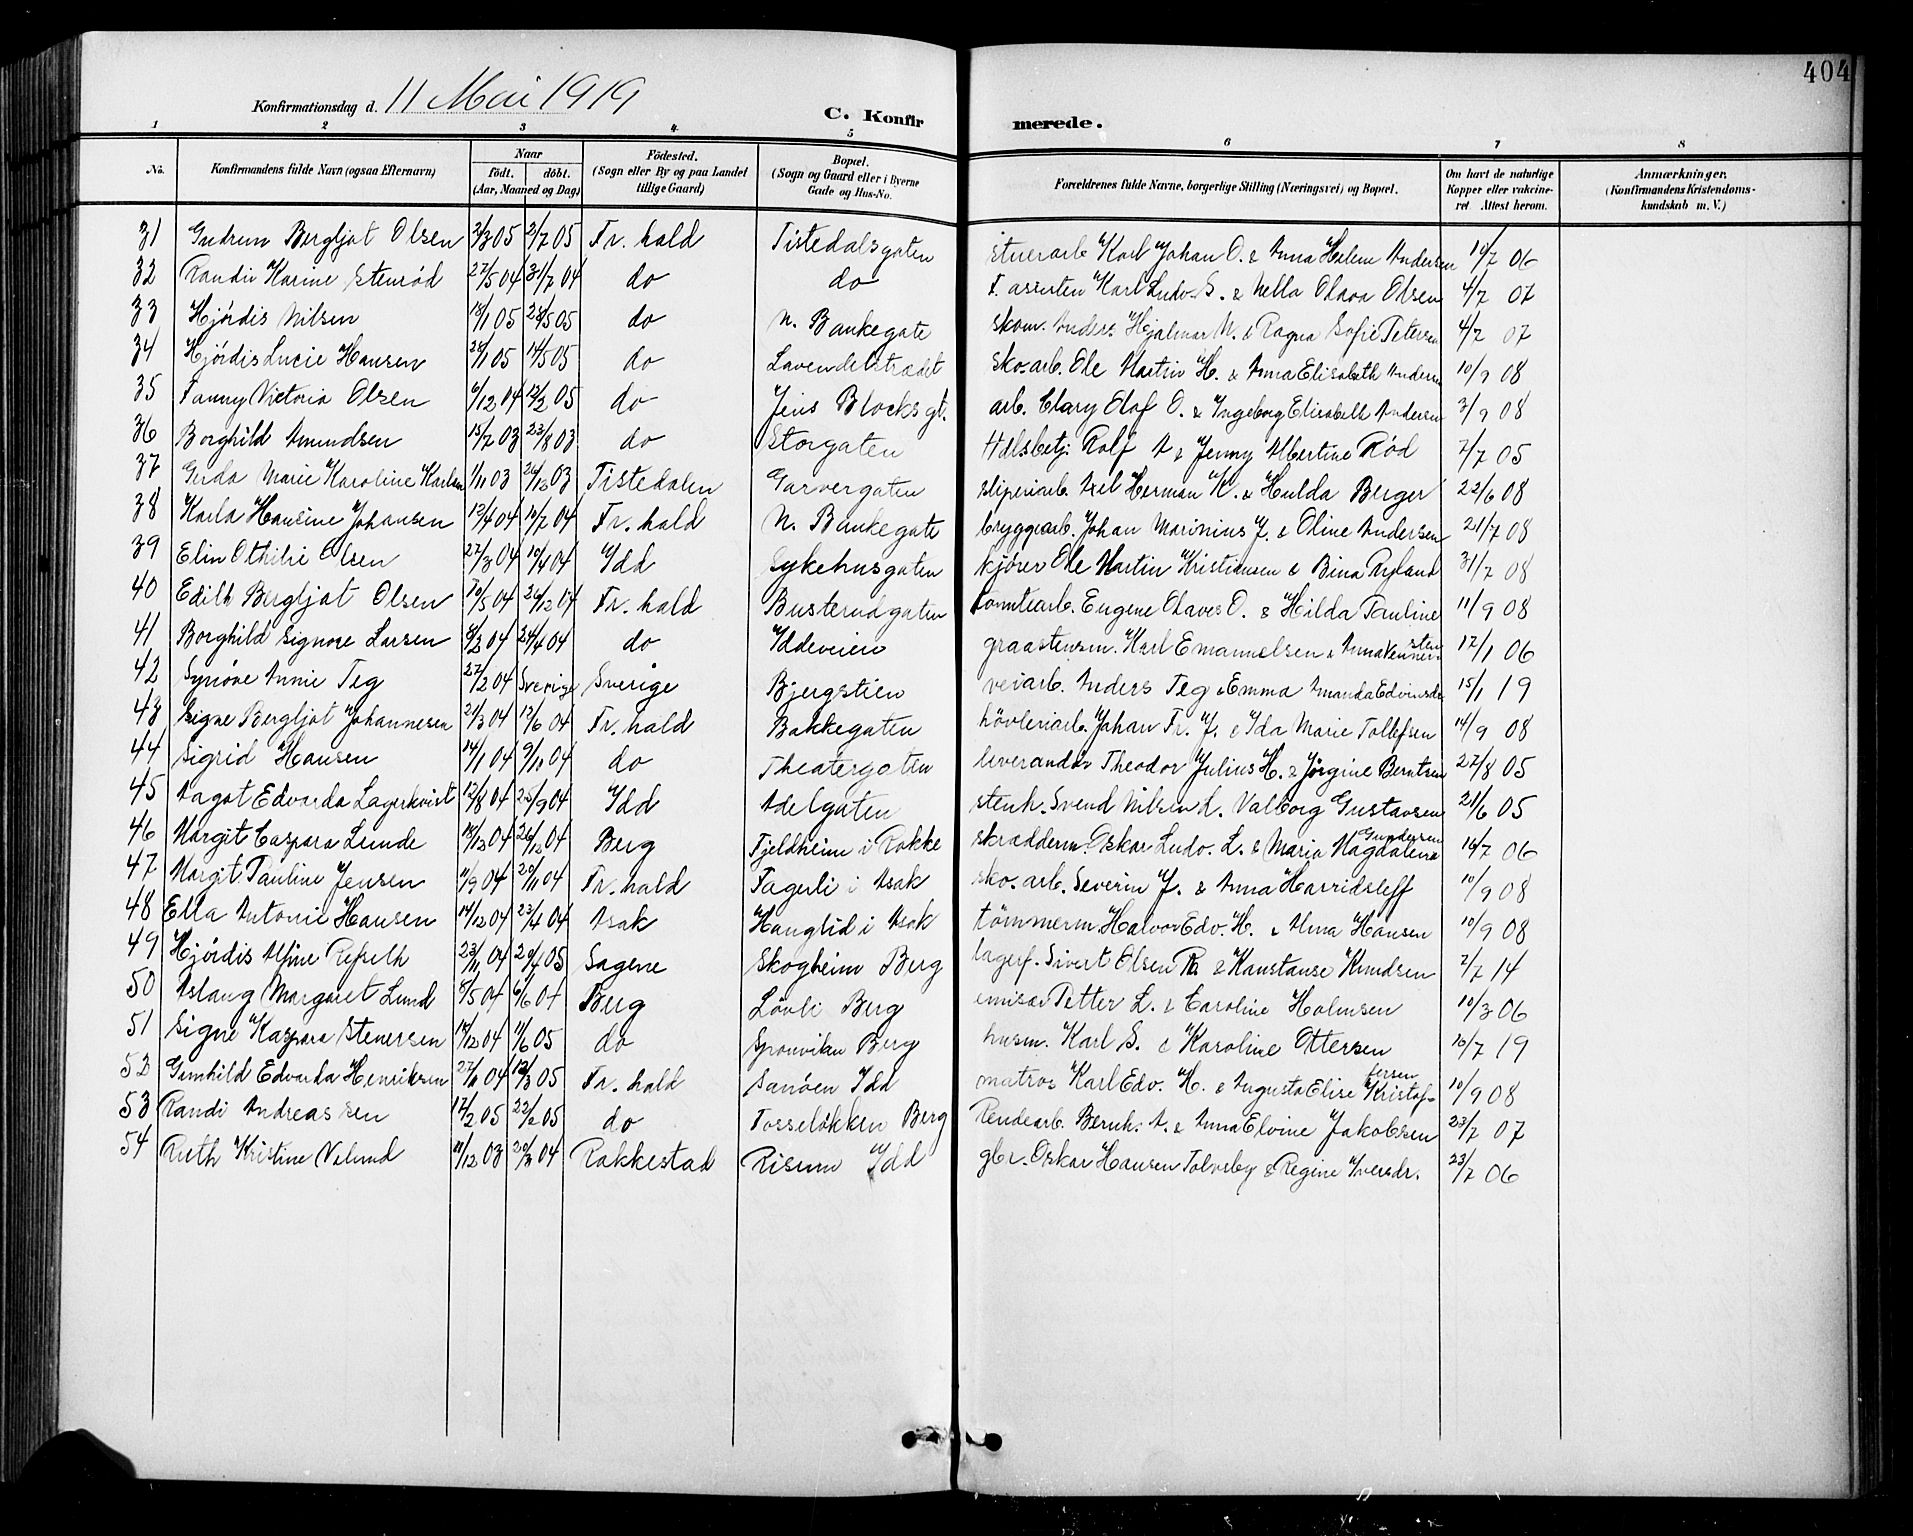 404
Konfirmationsdag d. 11 Mai 1919
C. Konfirmerede.
1 2 3 4 5 6 7 8
No. Konfirmandens fulde Navn (ogsaa Efternavn) Naar födt. döbt. (Aar, Maaned og Dag) Födested. (Sogn eller By og paa Landet tillige Gaard) Bopæl. (Sogn og Gaard eller i Byerne Gade og Hus-No. Forældrenes fulde Navne, borgerlige Stilling (Næringsvei) og Bopæl. Om havt de naturlige Kopper eller vakcineret Attest herom. Anmærkninger. (Konfirmandens Kristendomskundskab m. V.)
31 Gudrun Bergljot Olsen 2/3 05 2/7 05 Fr. hald Tistedalsgaten stuerarb. Karl Johan O. & Anna Helene Andersen 14/7 06
32 Randi Karine Stenrød 27/5 04 31/7 04 do do Karl Ludv. S. & Olava Olsen 4/7 07
33 Hjördis Nilsen 18/1 05 28/5 05 do N. Bankegate skom. Anders Hjalmar N. & Ragna Sofie Petersen 4/7 07
34 Hjördis Lucie Hansen 28/1 05 14/5 05 do Lavendelstrædet sko-arb. Ole Martin H. & Anna Elisabeth Andersen 10/9 08
35 Fanny Victoria Olsen 6/12 04 12/2 05 do Jens Blocksgt. arb. Clary Olof O. & Ingeborg Elisabeth Andersen 3/9 08
36 Borghild Amundsen 15/7 03 23/8 03 do Storgaten Hdlsbetj. Rolf A & Jenny Albertine Rød 7/7 05
37 Gerda Marie Karoline Karlsen 1/11 03 26/12 03 Tistedalen Garvergaten sliperiarb. Axel Herman K. & Hulda Berger 22/6 08
38 Karla Hansine Johansen 12/4 04 10/7 04 Fr. hald N. Bankegate bryggearb. Johan Marinius J. & Oline Andersen 21/7 08
39 Elin Othilie Olsen 27/3 04 10/4 04 Idd Sykehusgaten kjører Ole Martin Kristiansen & Bina Ryland 31/7 08
40 Edith Bergljot Olsen 10/5 04 26/12 04 Fr. hald Busterudgaten tomtearb. Eugene Olaves O. & Hilda Pauline 11/9 08
41 Borghild Signore Larsen 4/2 04 24/4 04 do Iddeveien graastensm. Karl Emannelsen & Anna 17/1 06
42 Synöve Annie Teg 27/2 04 Sverige Sverige Bjergstien veiarb. Anders Teg & Emma Amanda Edvinsdr 15/1 19
43 Signe Bergljot Johannesen 21/3 04 12/6 04 Fr. hald Bakkegaten hövleriarb. Johan Fr. J. & Ida Marie Tollefsen 14/9 08
44 Sigrid Hansen 14/1 04 9/10 04 do Theatergaten leverandör Theodor Julius H. & Jörgine Berntsen 27/8 05
45 Aagot Edvarda Lagerkvist 12/8 04 25/9 04 Idd Adelgaten stenh. Svend Nilsen L. Valborg Gustavsen 21/6 05
46 Margit Caspara Lunde 18/10 04 26/12 04 Berg Fjeldheim i Rokke skrædderm. Oskar Ludv. L. & Maria Magdalena Gundersen 14/7 06
47 Margit Pauline Jensen 11/9 04 20/11 04 Fr. hald Fagerli i Asak sko-arb. Severin J. & Anna Harridsleff 10/9 08
48 Ella Antonie Hansen 14/12 04 23/4 04 Asak Hauglid i Asak tömmerm. Halvor Edv. H. & Anna Hansen 10/9 08
49 Hjördis Alfine 23/11 04 20/4 05 Sagene Skogheim Berg lagerf. Sivert Olsen R. & Konstanse Knudsen 2/7 14
50 Aslaug Margaret Lund 8/5 04 6/6 04 Berg Lövli Berg emisær Petter L. & Caroline Holmsen 10/3 06
51 Signe Kaspara Stenersen 14/12 04 11/6 05 do Sponvikn Berg husm. Karl S. & Karoline Ottersen 10/7 19
52 Gunhild Edvarda Henriksen 27/11 04 12/3 05 Fr. hald Sanöen Idd matros Karl Edv. H. & Augusta Elise Kristoffersen 10/9 08
53 Randi Andreassen 12/2 05 22/2 05 do Fosselökken Berg Rendearb. Bernh. A. & Anna Elvine Jakobsen 23/7 07
54 Ruth Kristine Nilund 11/12 03 20/3 04 Rakkestad Risum Idd gbr. Oskar Hansen Tolvsby & Regine Iversdr. 23/7 06